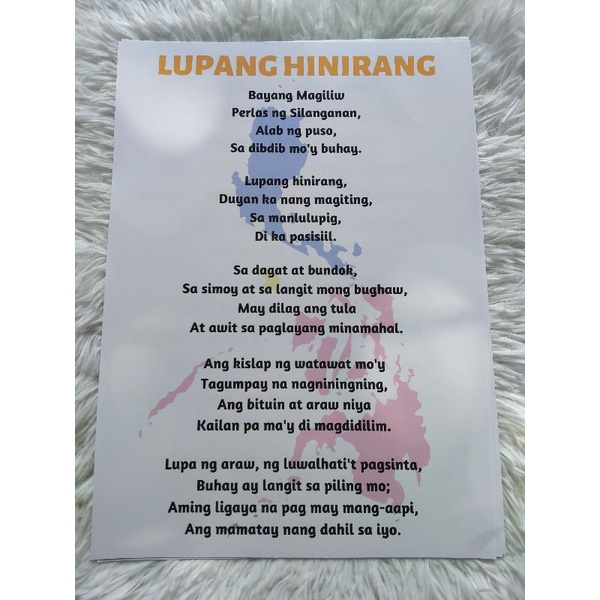 LUPANG HINIRANG
Bayang Magiliw
Perlas ng Silanganan,
Alab ng puso,
Sa dibdib mo'y buhay.
Lupang hinirang,
Duyan ka nang magiting,
Sa manlulupig,
Di ka pasisiil.
Sa dagat at bundok,
Sa simoy at sa langit mong bughaw,
May dilag ang tula
At awit sa paglayang minamahal.
Ang kislap ng watawat mo'y
Tagumpay na nagniningning,
Ang bituin at araw niya
Kailan pa ma'y di magdidilim.
Lupa ng araw, ng luwalhati't pagsinta,
Buhay ay langit sa piling mo;
Aming ligaya na pag may mang-aapi,
Ang mamatay nang dahil sa iyo.